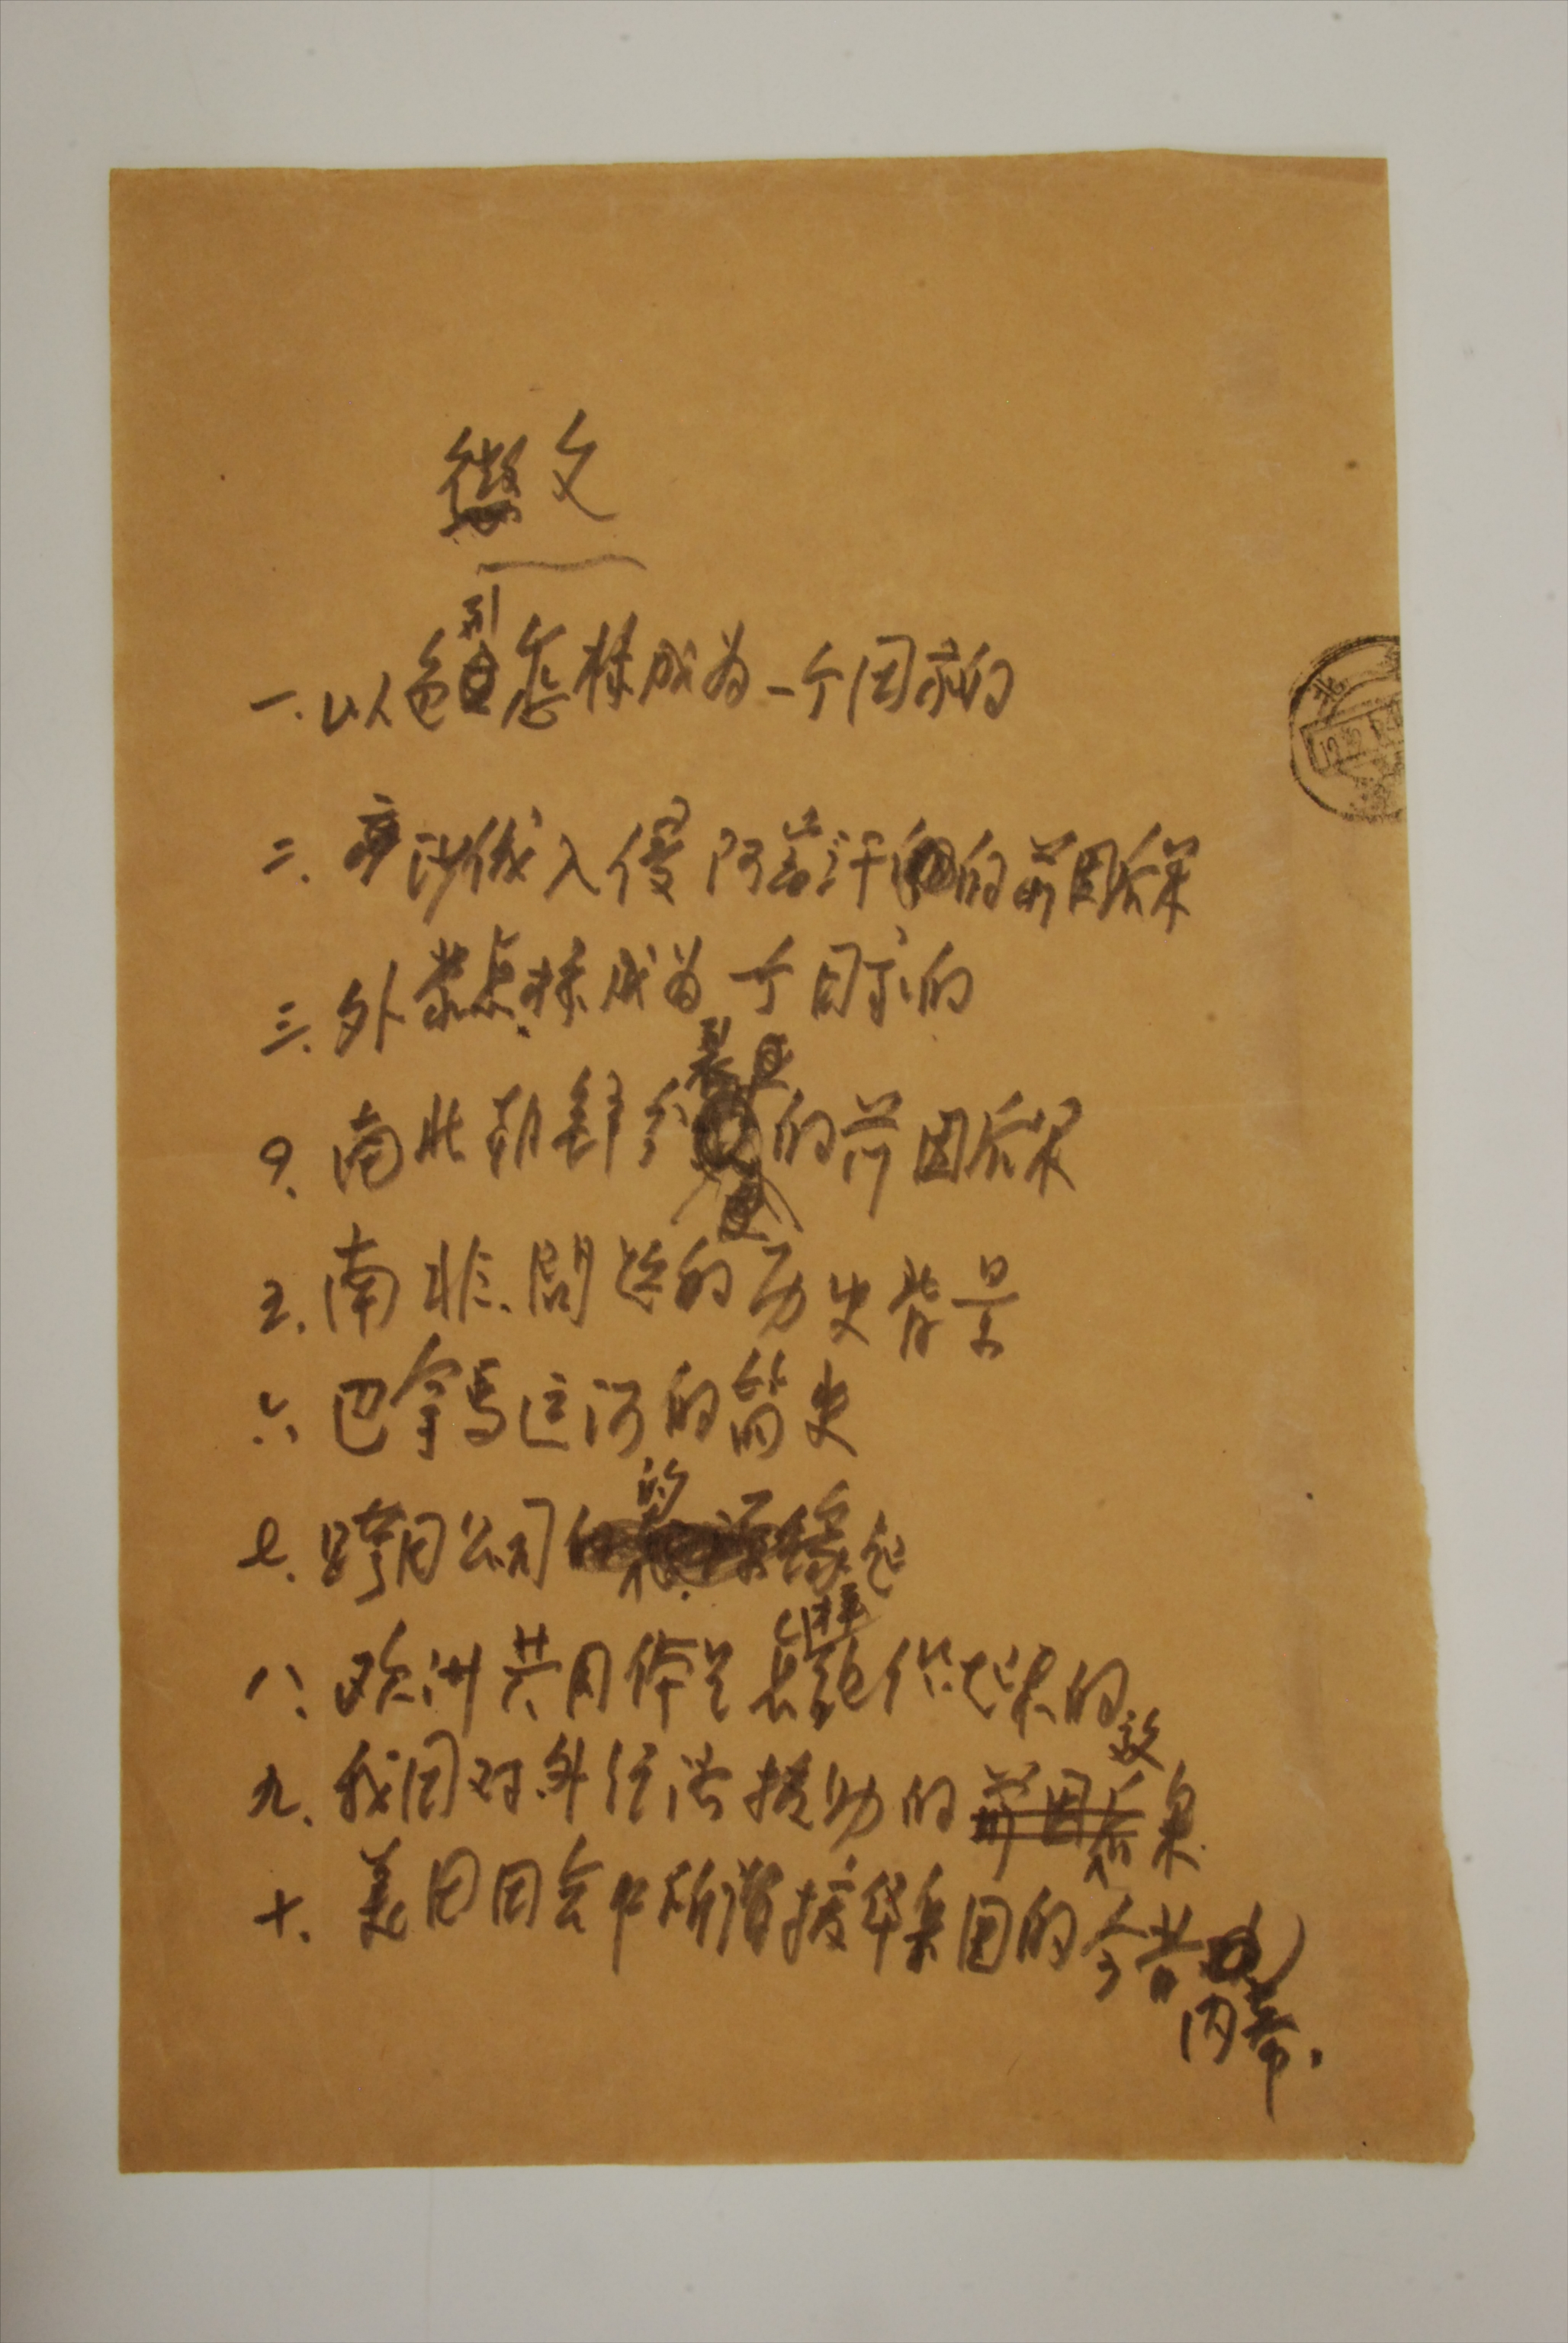 徵文
一.以色列怎樣成为一个国家的
二.沙俄入侵阿富汗的前因后果
三.外蒙怎样成为一个国家的
四.南北朝鲜分裂的前因后果
五.南非問题的历史背景
六.巴拿馬运河的简史
七.跨国公司的缘起
八.欧洲共同体是怎样组作起来的
九.我国对外经济援助的效果
十.美国国会中所谓援华集团的今昔
内幕.
北